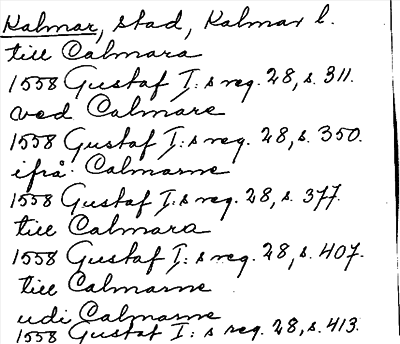 Kalmar, stad, Kalmar l.
till Calmara
1558 Gustaf I: s reg. 28, s. 311.
ved Calmare
1558 Gustaf I: s reg. 28, s. 350.
ifrå Calmarne
1558 Gustaf I: s reg. 28, s. 377.
till Calmara
1558 Gustaf I: s reg. 28, s. 407.
till Calmarne
udi Calmarne
1558 Gustaf I: s reg. 28, s. 413.